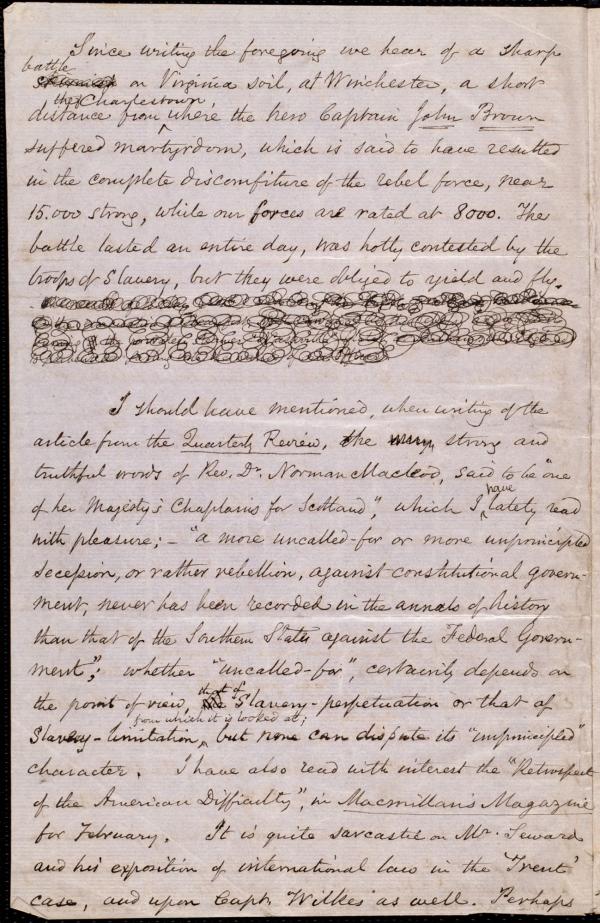 Since writing the foregoing we hear of a sharp
battle
on Virginia soil, at Winchester, a short
the Charlestown,
distance from where the hero Captain John Brown
suffered martyrdom, which is said to have resulted
in the complete discomfiture of the rebel force, near
15.000 strong, while our forces are rated at 8000. The
battle lasted an entire day, was hotly contested by the
troops of Slavery, but they were obliged to yield and fly.
I should have mentioned, when writing of the
article from the Quarterly Review, the strong and
truthful words of Rev. Dr. Norman Macleod, said to be "one
have
of her Majesty's Chaplains for Scotland", which I lately read
with pleasure; - "a more uncalled-for or more unprincipled
secession, or rather rebellion, against constitutional govern-
ment, never has been recorded in the annals of history
than that of the Southern States against the Federal Govern-
ment"; whether "uncalled-for", certainly depends on
that of
the point of view, Slavery-perpetuation or that of
from which it is looked at;
Slavery-limitation, but none can dispute its "unprincipled"
character. I have also read with interest the "Retrospect
of the American Difficulty", in Macmillan's Magazine
for February. It is quite sarcastic on Mr. Seward
and his exposition of international law in the 'Trent'
case, and upon Capt. Wilkes as well. Perhaps